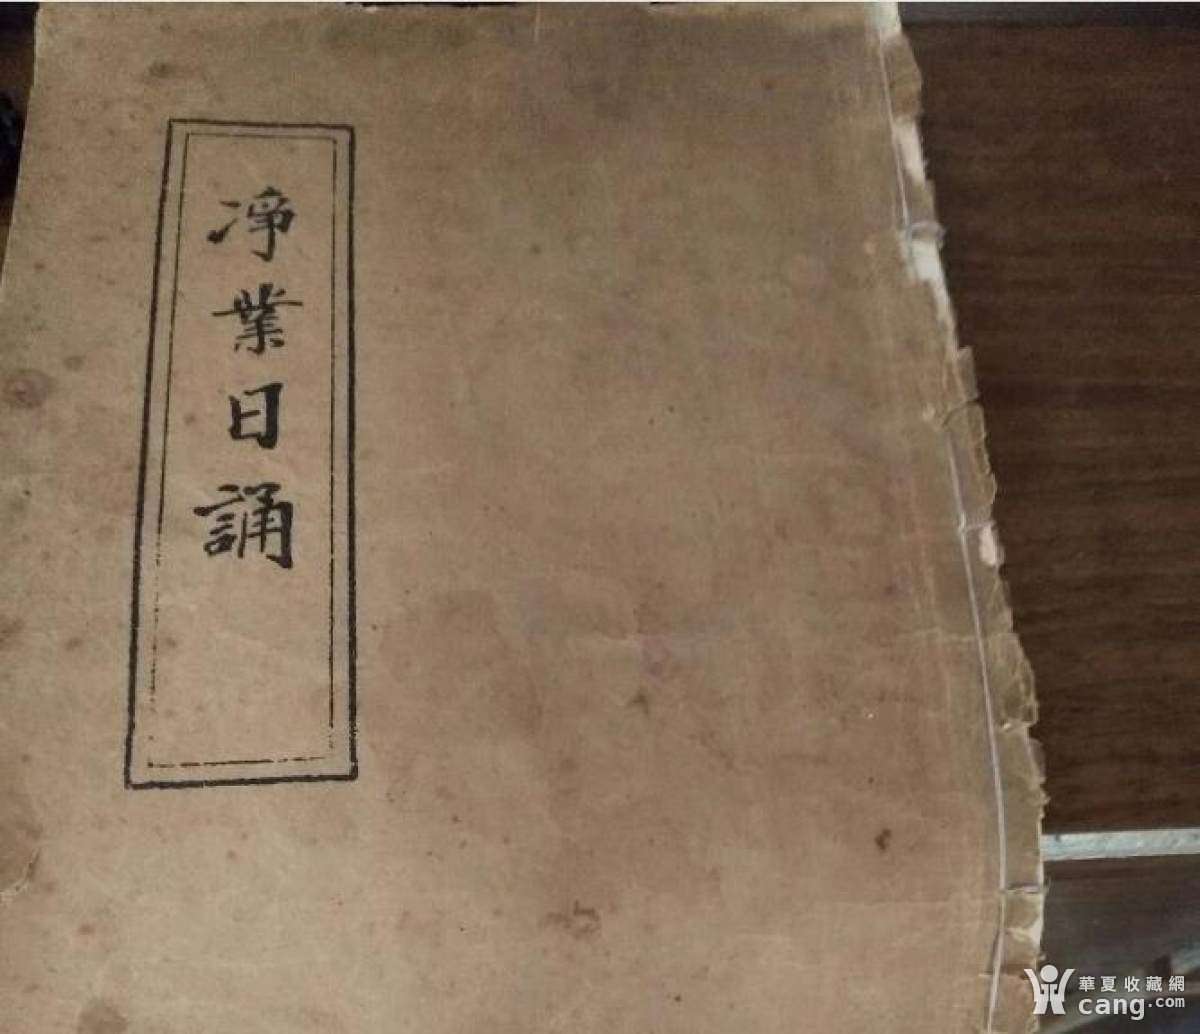 凈業日誦
華夏收藏網
cang.com